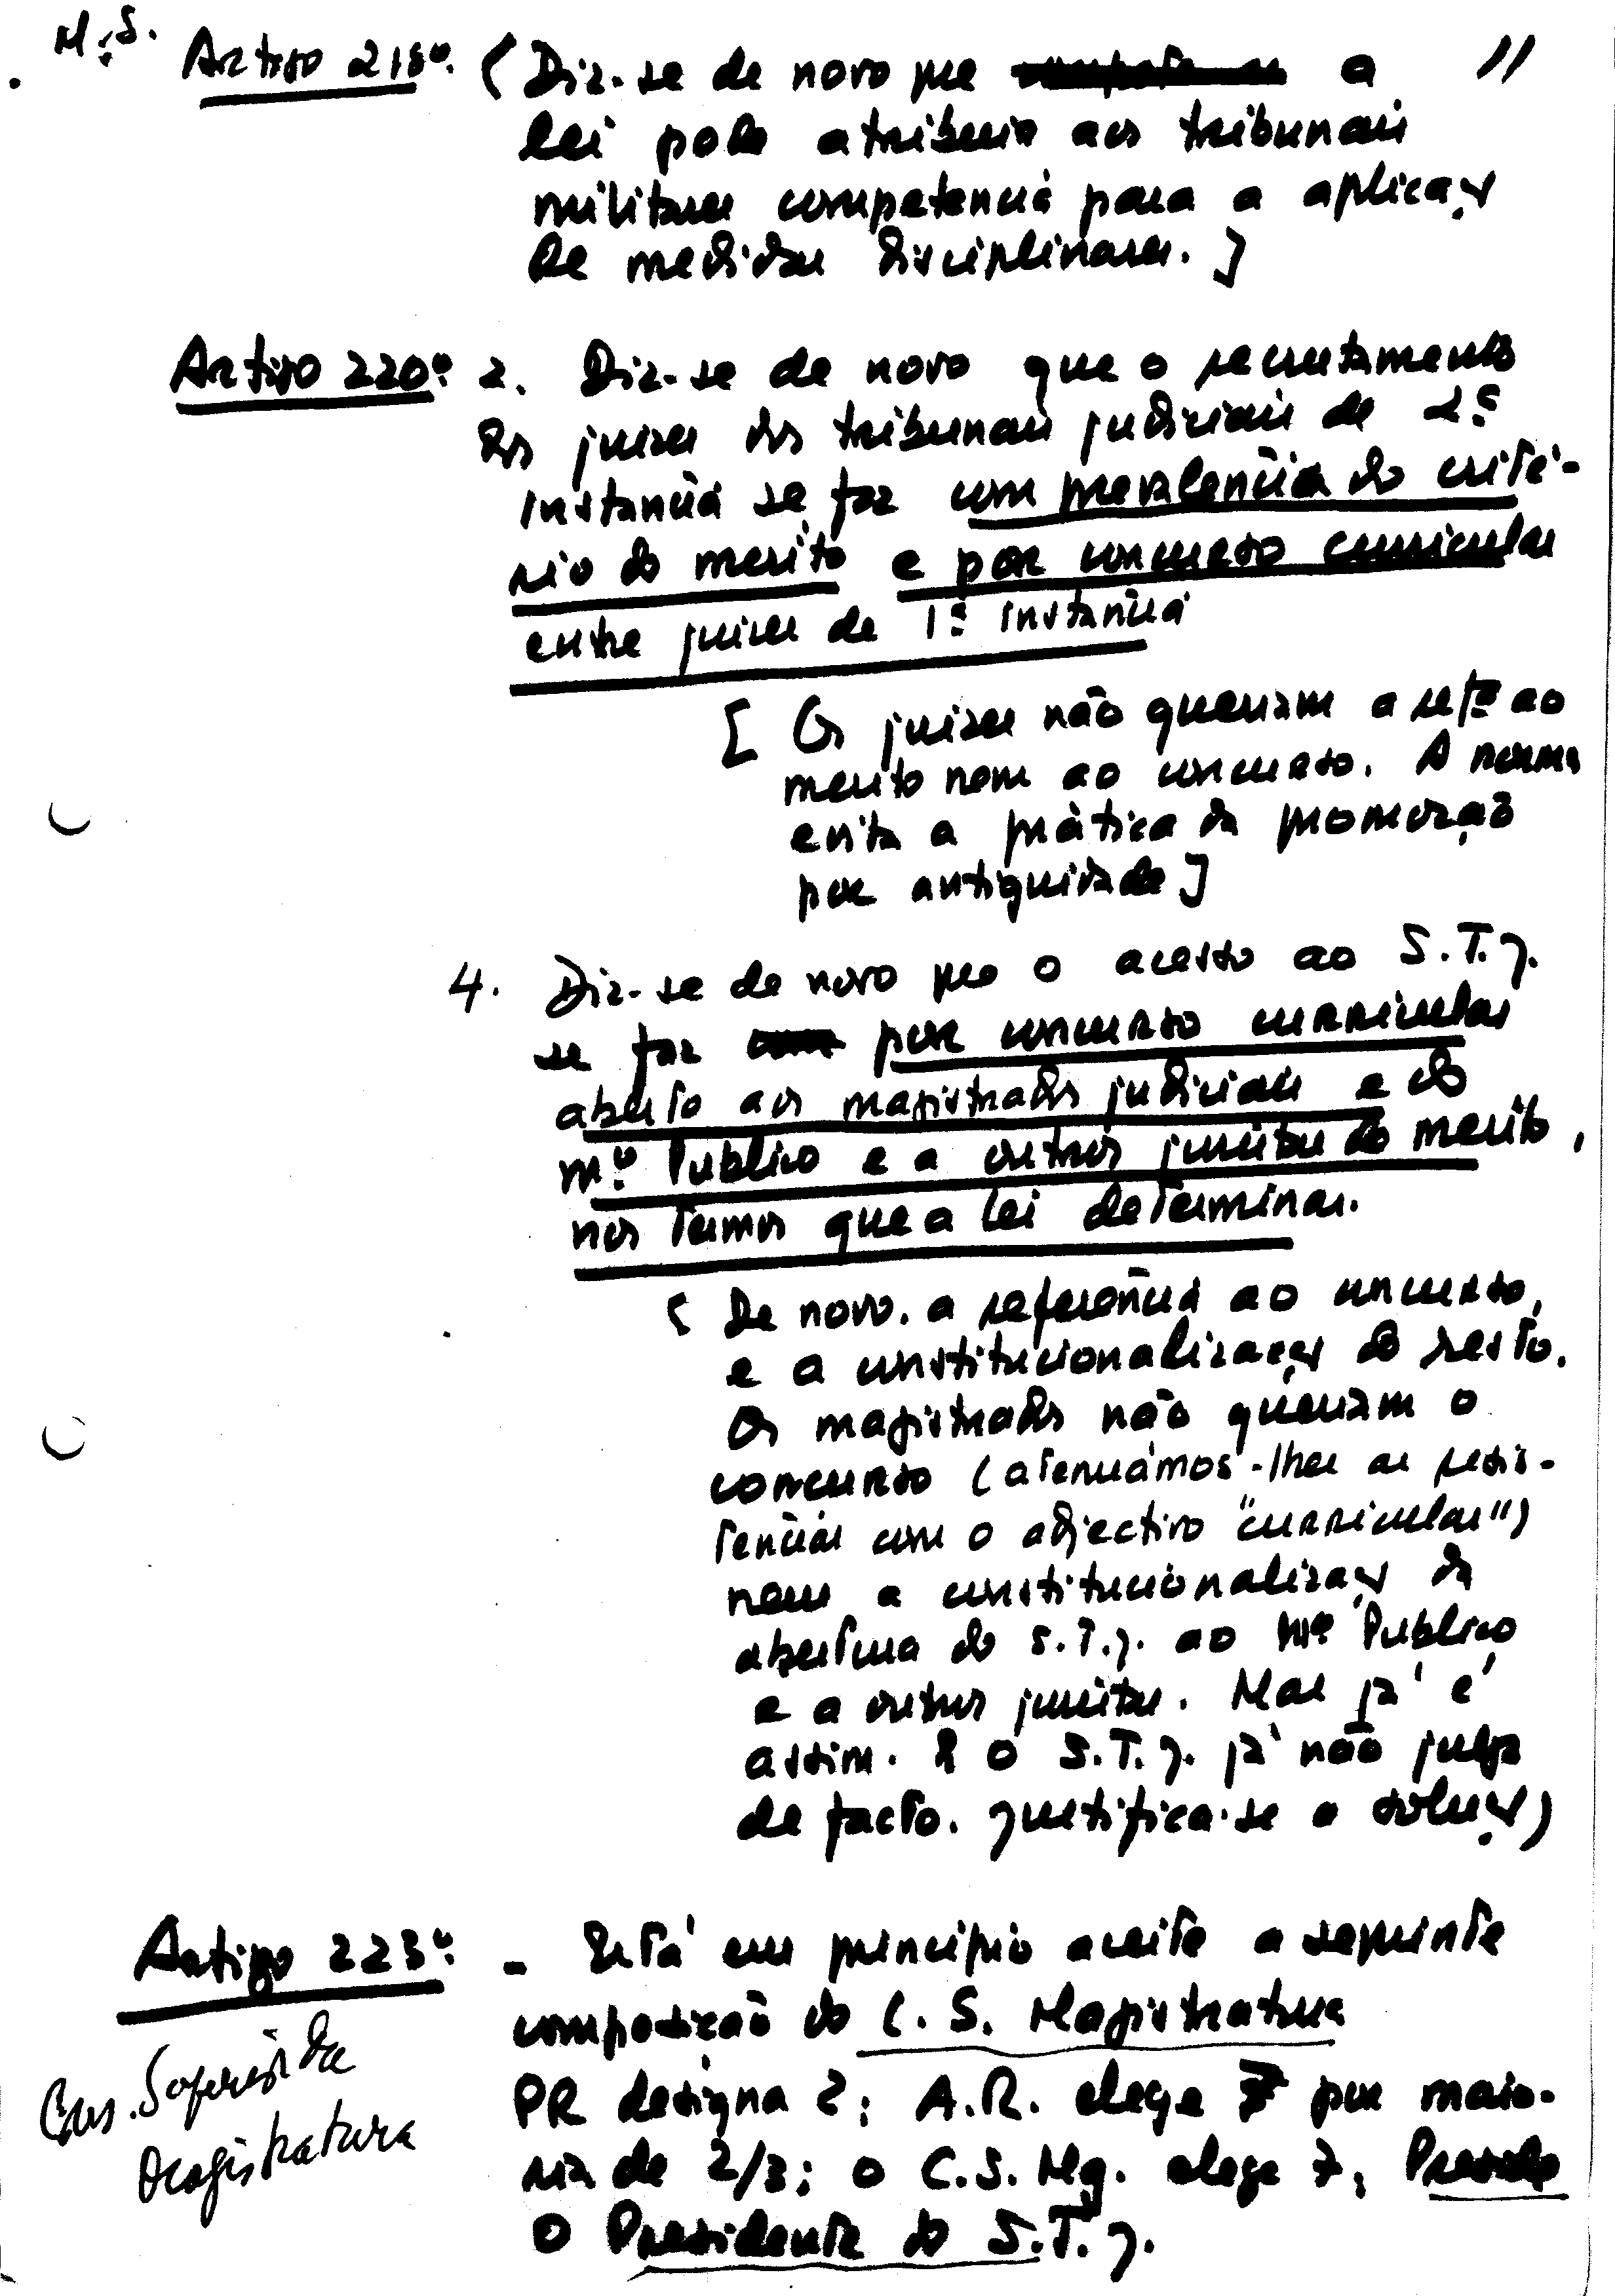 M.S.
11
Artigo 218º. (Diz-se de novo que a
lei pode atribuir aos tribunais
militares competência para a aplicação
de medidas disciplinares.]
Artigo 220º. 2. Diz-se de novo que o recrutamento
dos juizes dos tribunais judiciais de 2ª
instância se faz com prevalência do crité-
rio do merito e por concurso curricular
entre juizes de 1ª instância
[Os juizes não queriam a refª ao
merito nem ao concurso. A norma
evita a prática da promoção
por antiguidade]
4. Diz-se de novo que o acesso ao S.T.J.
se faz por concurso curricular
aberto aos magistrados judiciais e do
Mº Publico e a outros juristas de merito,
nos termos que a lei determinar.
( De novo. a referência ao concurso,
e a constitucionalização do resto.
Os magistrados não queriam o
concurso (atenuámos-lhes as resis-
tências com o adjectivo "curricular")
nem a constitucionalização da
abertura do S.T.J. ao Mº Publico
e a outros juristas. Mas já é
assim. E o S.T.J. já não julga
de facto. Justifica-se a solução)
Artigo 223º. - Está em principio aceite a seguinte
composição do C. S. Magistratura
Cons. Superior da
Magistratura
PR designa 2; A.R. elege 7 por maio-
ria de 2/3; o C.S. Mg. elege 7, Preside
o Presidente do S.T.J.